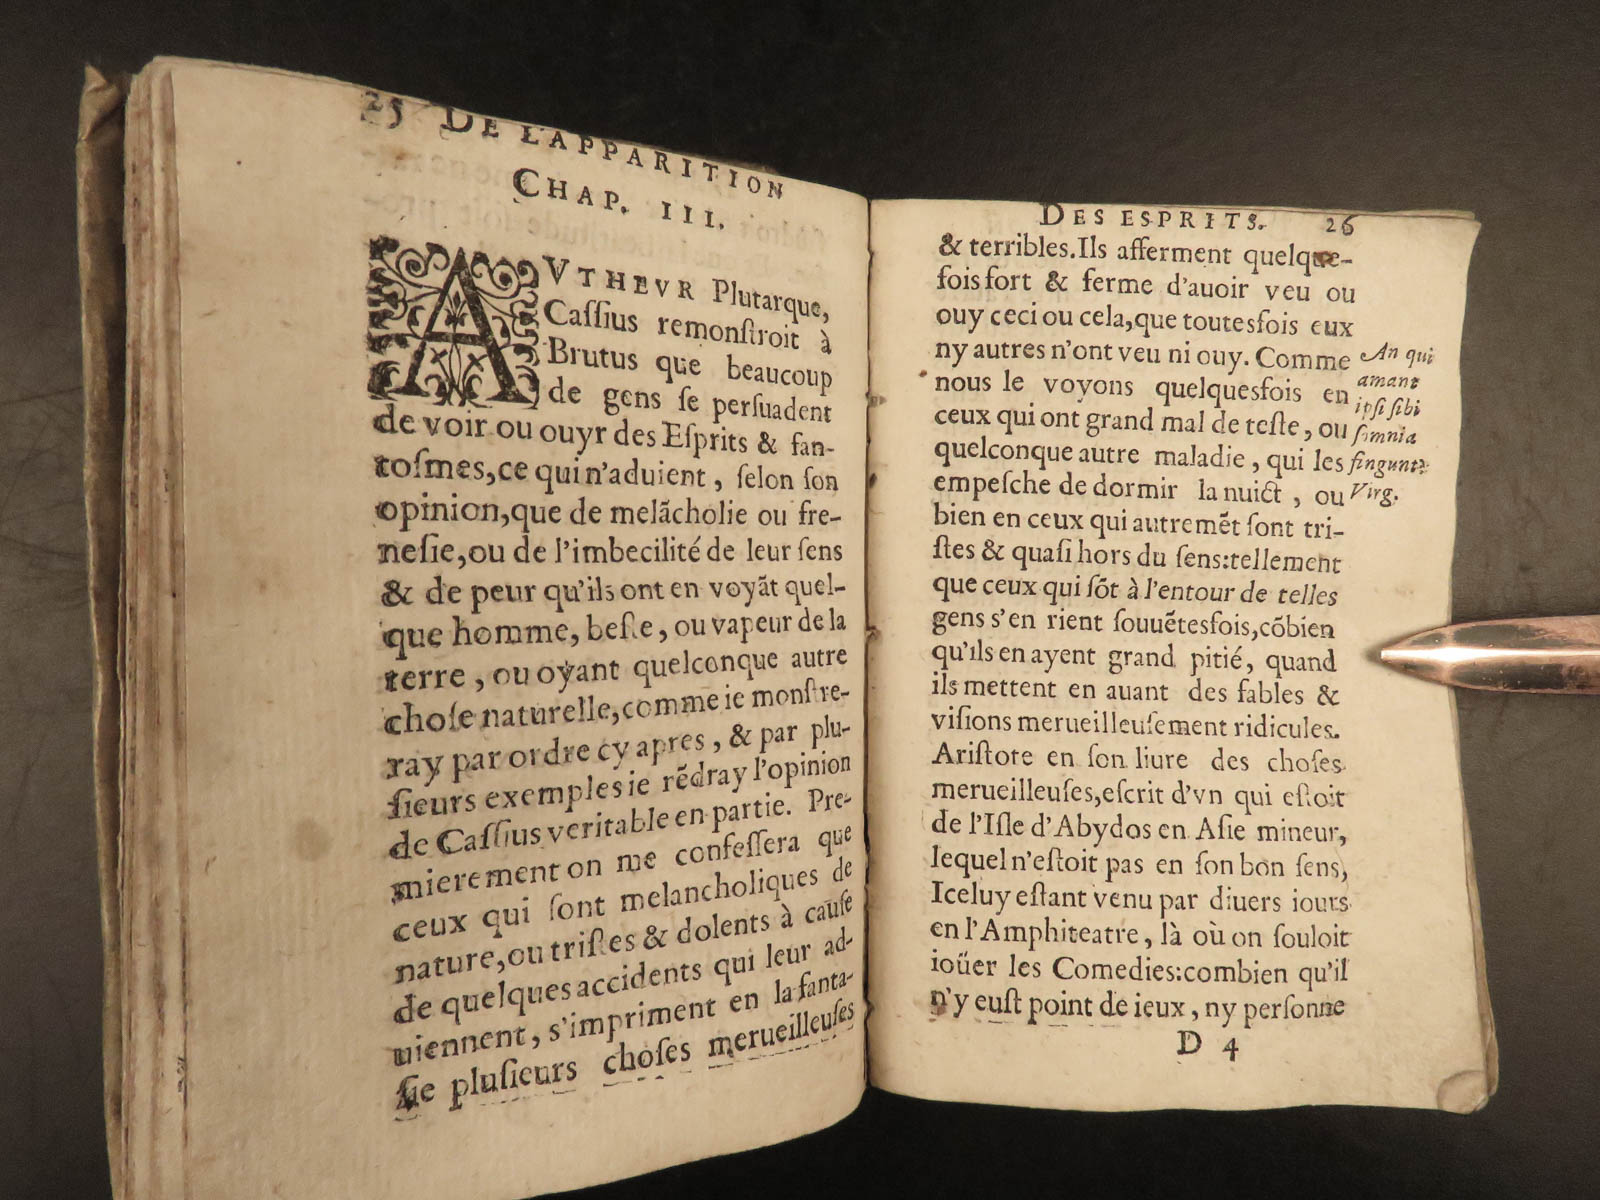 25 DE L'APPARITION
CHAP. III.
AVTHEVR Plutarque,
Caſſius remonſtroit à
Brutus que beaucoup
de gens ſe perſuadent
de voir ou ouyr des Eſprits & fan-
toſmes, ce qui n'aduient, ſelon ſon
opinion, que de melãcholie ou fre-
neſie, ou de l'imbecilité de leur ſens
& de peur qu'ils ont en voyãt quel-
que homme, beſte, ou vapeur de la
terre, ou oyant quelconque autre
choſe naturelle, comme ie monſtre-
ray par ordre cy apres, & par plu-
ſieurs exemples ie rẽdray l'opinion
de Caſſius veritable en partie. Pre-
mierement on me confeſſera que
ceux qui ſont melancholiques de
nature, ou triſtes & dolents à cauſe
de quelques accidents qui leur ad-
uiennent, s'impriment en la fanta-
ſie pluſieurs choſes merueilleuſes
DES ESPRITS. 26
& terribles. Ils afferment quelque-
fois fort & ferme d'auoir veu ou
ouy ceci ou cela, que toutesfois eux
ny autres n'ont veu ni ouy. Comme
nous le voyons quelquesfois en
ceux qui ont grand mal de teſte, ou
quelconque autre maladie, qui les
empeſche de dormir la nuict, ou
bien en ceux qui autremẽt ſont tri-
ſtes & quaſi hors du ſens: tellement
que ceux qui ſõt à l'entour de telles
gens s'en rient ſouuẽtesfois, cõbien
qu'ils en ayent grand pitié, quand
ils mettent en auant des fables &
viſions merueilleuſement ridicules.
Ariſtote en ſon liure des choſes
merueilleuſes, eſcrit d'vn qui eſtoit
de l'Iſle d'Abydos en Aſie mineur,
lequel n'eſtoit pas en ſon bon ſens,
Iceluy eſtant venu par diuers iours
en l'Amphiteatre, là où on ſouloit
ioüer les Comedies: combien qu'il
n'y euſt point de ieux, ny perſonne
D 4
An qui
amant
ipſi ſibi
ſomnia
fingunt?
Virg.